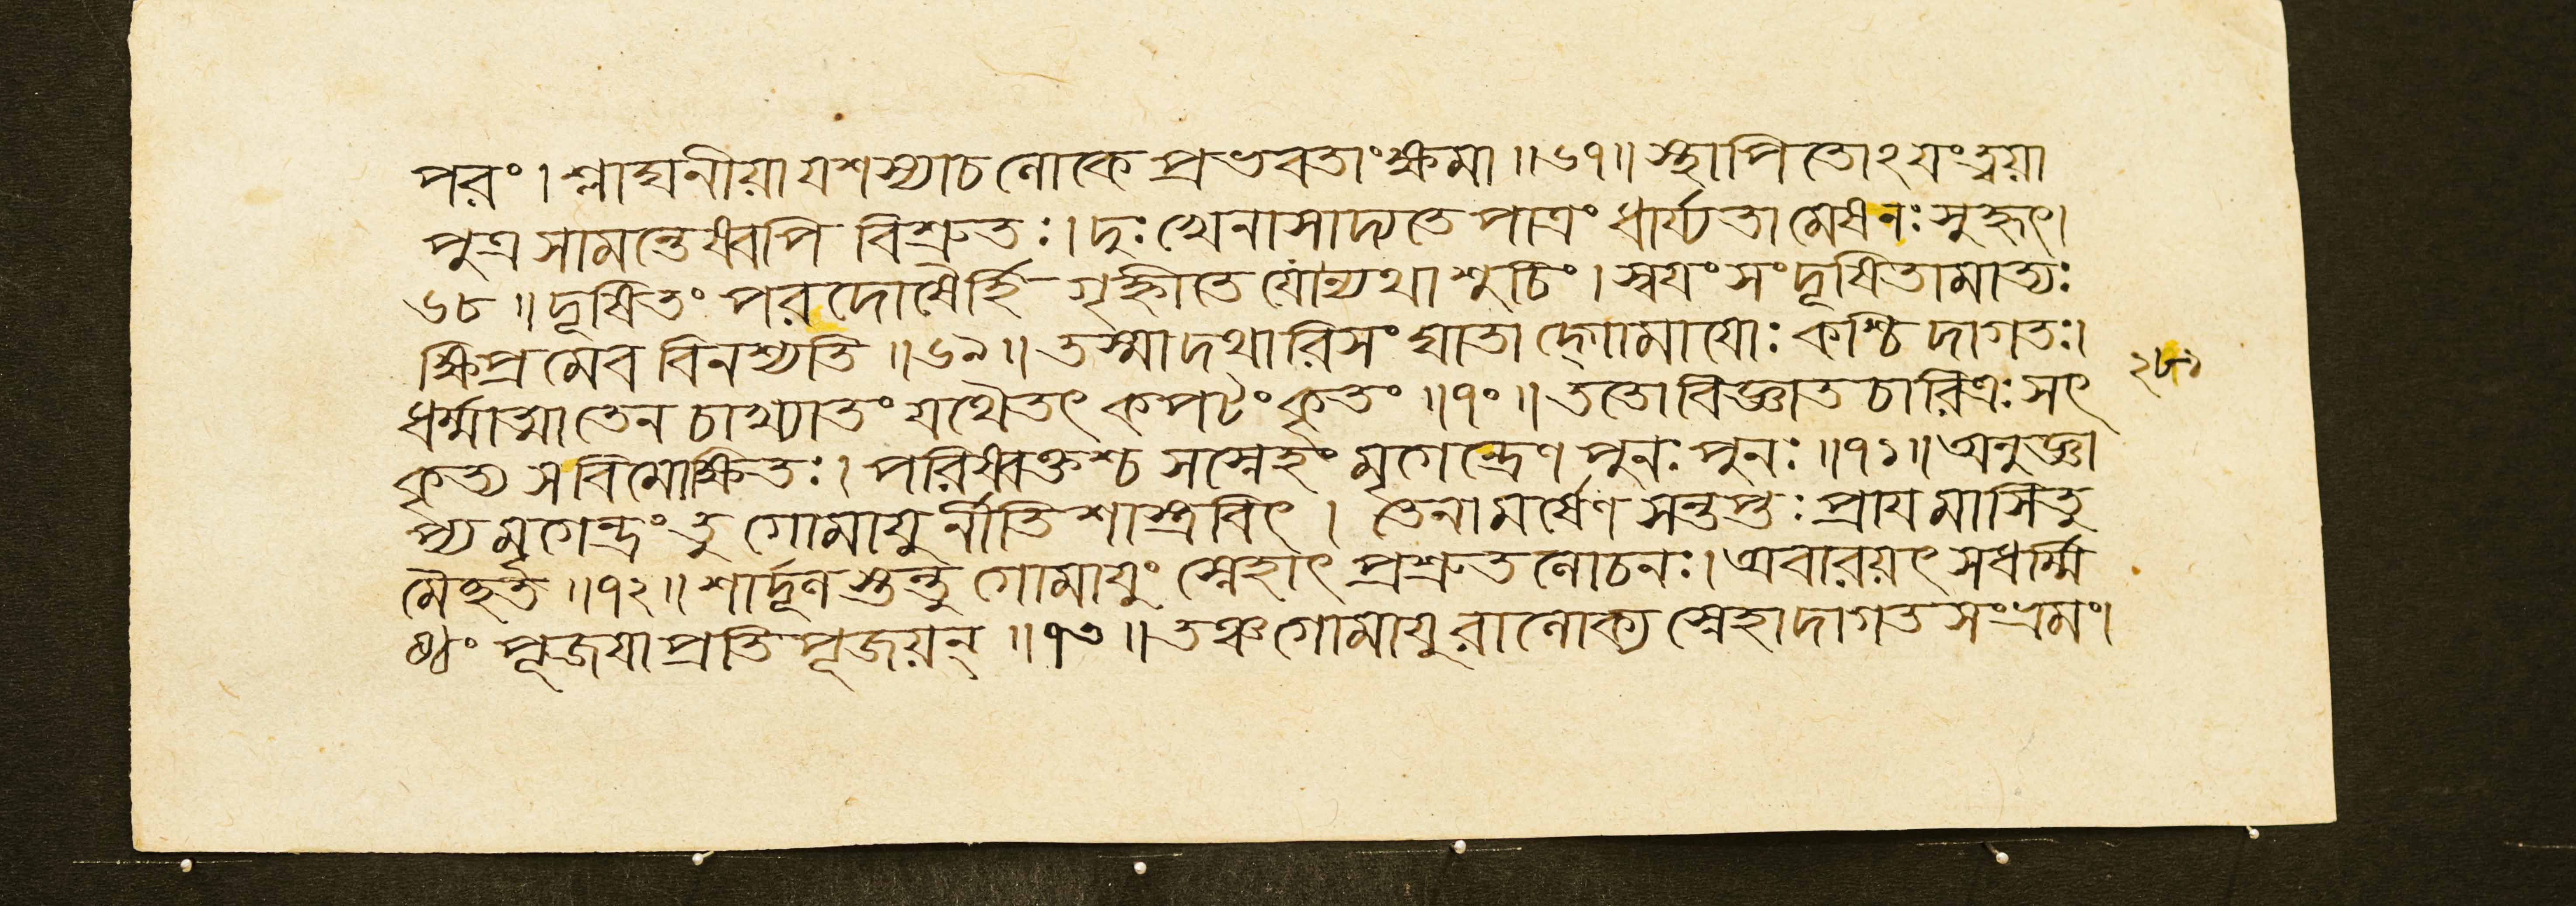 পরং। শ্লাঘনীয়া যশস্যা চ লোকে প্রভবতাং ক্ষমা ॥৬৭॥ স্থাপিতোঽযং ত্বয়া
পুত্র সামন্তেষ্বপি বিশ্রুতঃ। দুঃখেনাসাদ্যতে পাত্রং ধার্য্যতামেষ নঃ সুহৃৎ।
৬৮ ॥ দূষিতং পরদোষৈর্হি গৃহ্নীতে যোন্যথা শুচিং। স্বযং সংদূষিতামাত্যঃ
ক্ষিপ্রমেব বিনশ্যতি ॥৬৯॥ তস্মাদথারিসংঘাতাদ্গোমাযোঃ কশ্চিদাগতঃ।
ধর্ম্মাত্মা তেন চাখ্যাতং যথৈতৎ কপটং কৃতং ॥৭০॥ ততো বিজ্ঞাতচারিত্রঃ সৎ
কৃত্য স বিমোক্ষিতঃ। পরিষ্বক্তশ্চ সস্নেহং মৃগেন্দ্রেণ পুনঃ পুনঃ ॥৭১॥ অনুজ্ঞা
প্য মৃগেন্দ্রং তু গোমাযুর্নীতিশাস্ত্রবিৎ। তেনামর্ষেণ সন্তপ্তঃ প্রাযমাসিতু
মৈহত ॥৭২॥ শার্দূলস্তন্তু গোমাযুং স্নেহাৎ প্রশ্রুতলোচনঃ। অবারয়ৎ স ধর্ম্মি
ষ্ঠং পূজযা প্রতিপূজয়ন্ ॥৭৩॥ তঞ্চ গোমাযুরালোক্য স্নেহাদাগতসংভ্রমং।